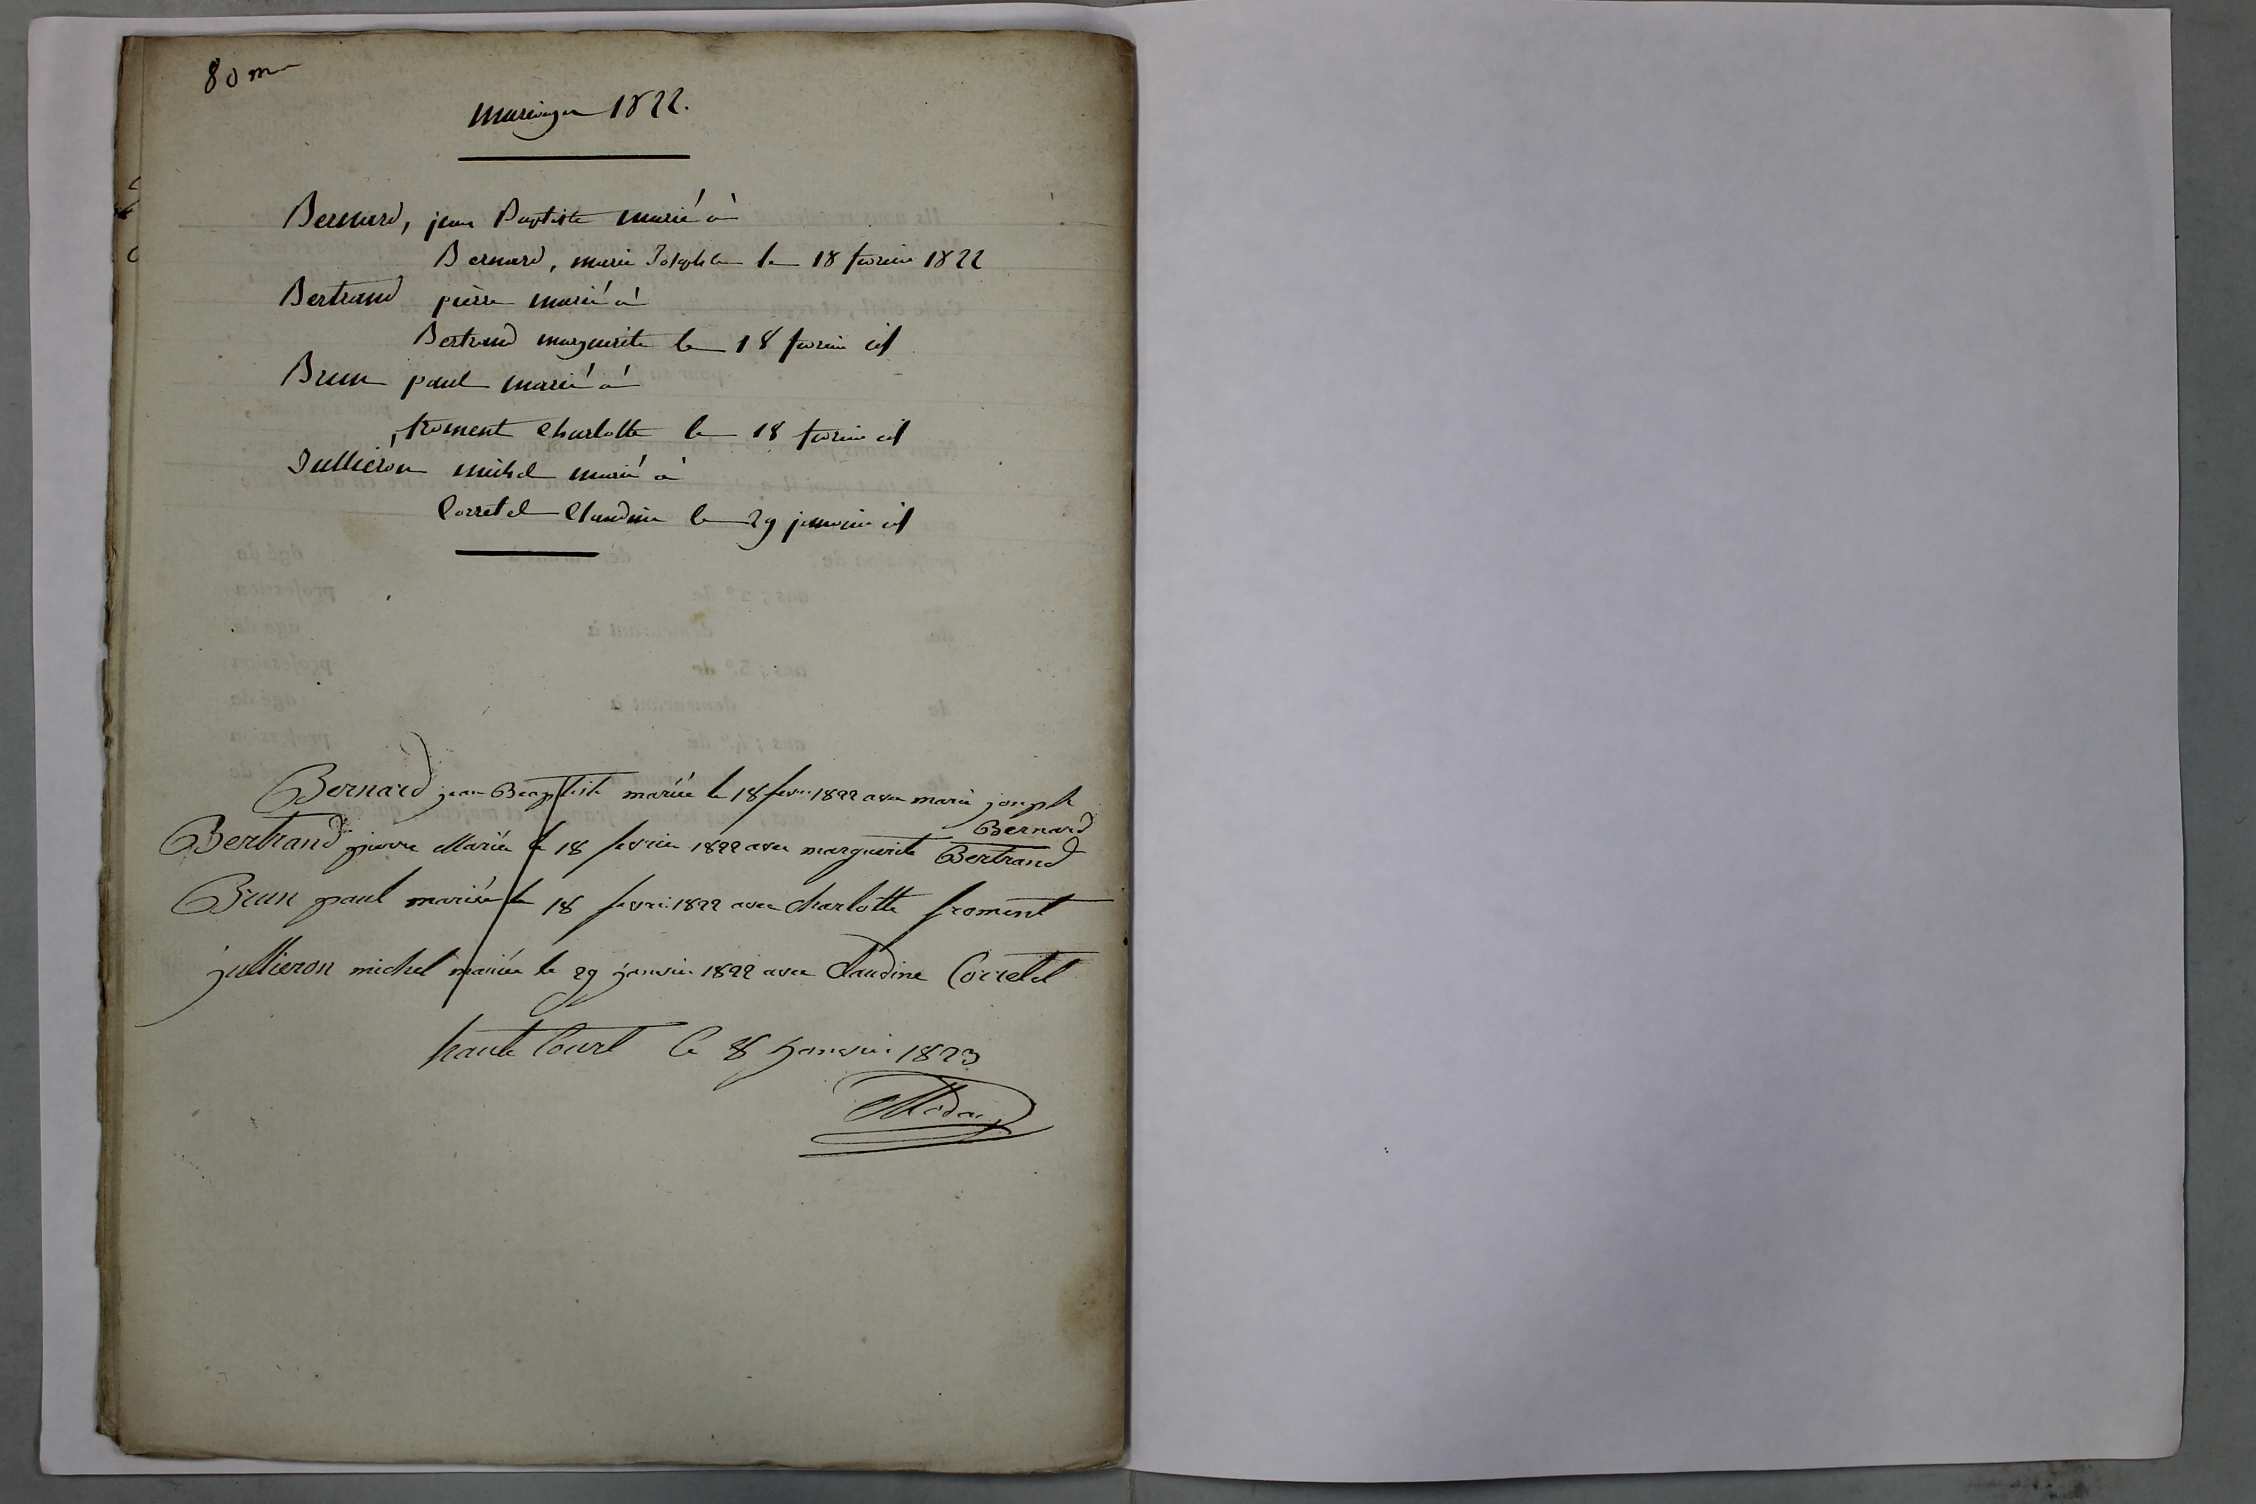 80 m
mariages 1822.
Bernard, jean Baptiste marié à
Bernard, marie Josephte le 18 fevrier 1822
Bertrand pierre marié à
Bertrand marguerite le 18 fevrier id
Brun paul marié à
froment Charlotte le 18 fevrier id
Jullieron michel marié à
Corretel Claudine le 29 janvier id
Bernard jean Baptiste mariée le 18 fevr. 1822 avec marie joseph
Bernard
Bertrand pierre Mariée le 18 fevrier 1822 avec marguerite Bertrand
Brun paul mariée le 18 fevri. 1822 avec charlotte froment
jullieron michel mariée le 29 janvier 1822 avec Claudine Corretel
haute Court le 8 Janvier 1823